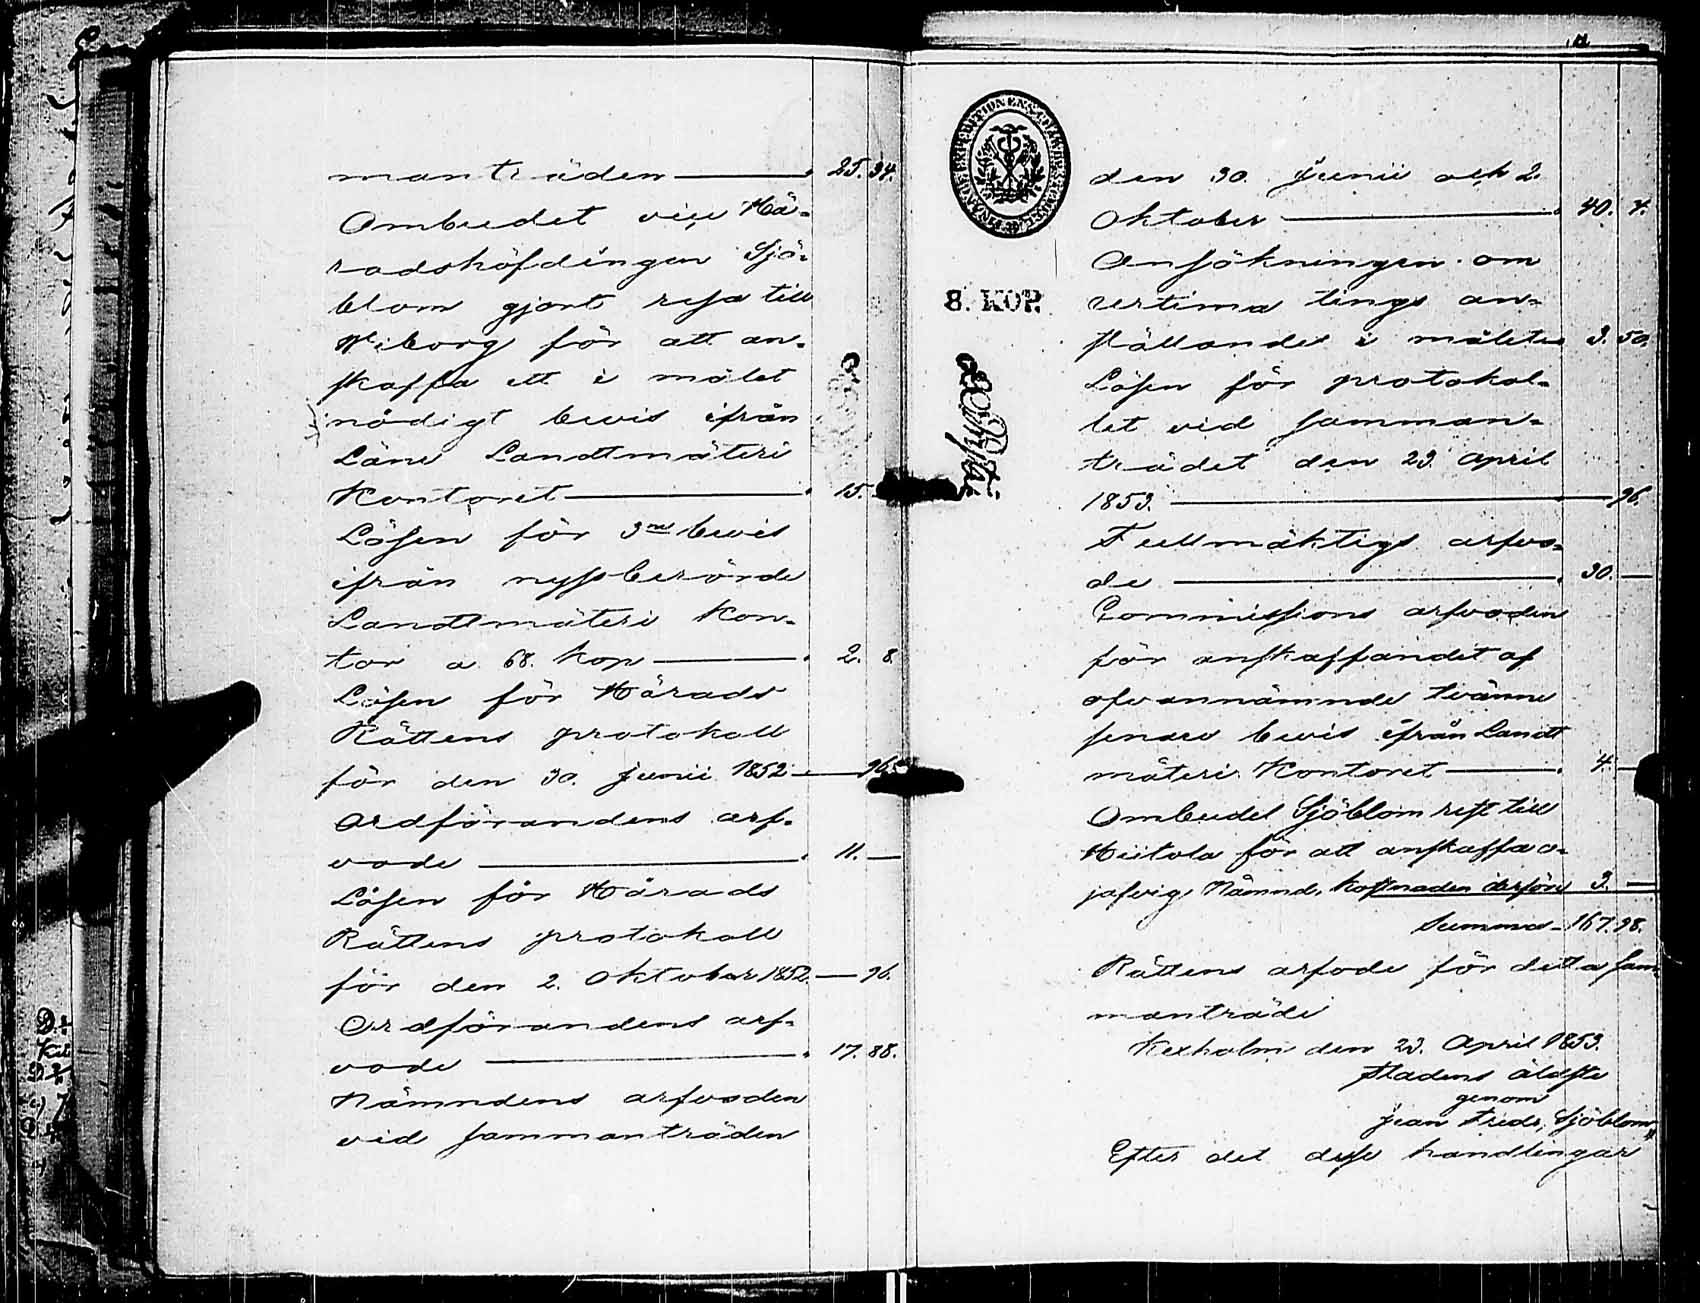 manträden — 25. 94.
Ombudet vice Hä-
radshöfdingen Sjö-
blom gjort resa till
Wiborg för att an-
skaffa ett i målet
nödigt bevis ifrån
Läne Landtmäteri
Kontoret — 15.
Lösen för 3ne bevis
ifrån nyssberörde
Landtmäteri Kon-
tor a 68. kop — 2. 8.
Lösen för Härads
Rättens protokoll
för den 30. Junii 1852 — 96.
Ordförandens arf-
vode — 11. —
Lösen för Härads
Rättens protokoll
för den 2. Oktober 1852. — 96.
Ordförandens arf-
vode — 17. 88.
Nämndens arfvoden
vid sammanträden
8. KOP.
den 30. Junii och 2.
Oktober — 40. 4.
Ansökningen om
urtima tings an-
ställandet i målet 3. 50.
Lösen för protokol-
let vid samman-
trädet den 23 April
1853. — 96.
Fullmäktigs arfvo-
de — 30. —
Commissions arfvoden
för anskaffandet af
ofvannämnde tvänne
senare bevis ifrån Landt
mäteri Kontoret — 4. —
Ombudet Sjöblom rest till
Hiitola för att anskaffa o-
jäfvig Nämnd, kostnaden derföre 3. —
Summa 167. 98.
Rättens arfode för detta sam-
manträde
Kexholm den 23. April 1853.
Stadens äldste
genom
Jean Fredr. Sjöblom
Efter det desse handlingar